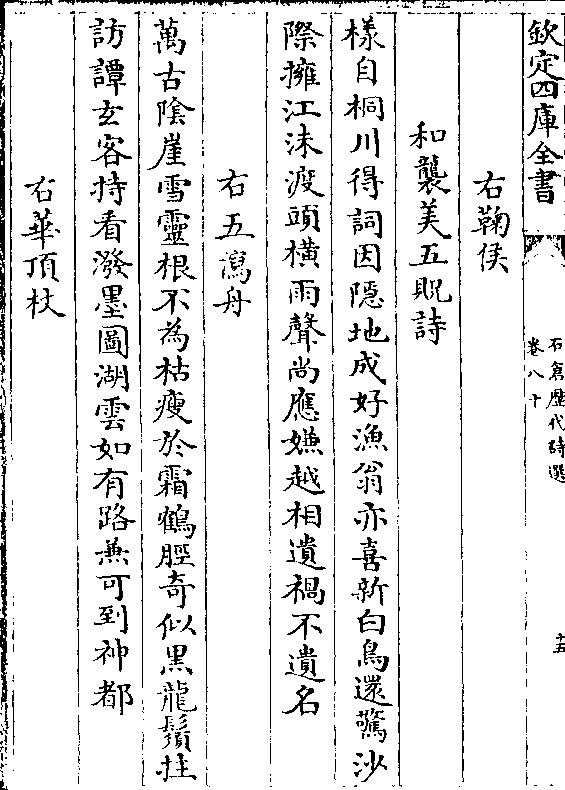 欽定四庫全書
石倉歷代詩選
卷八十
十五
右鞠侯
和襲美五貺詩
樣自桐川得詞因隱地成好漁翁亦喜新白鳥還驚沙
際擁江沫渡頭橫雨聲尚應嫌越相遺禍不遺名
右五瀉舟
萬古陰崖雪靈根不為枯瘦於霜鶴脛奇似黑龍鬚拄
訪譚玄客持看潑墨圖湖雲如有路兼可到神都
右華頂杖